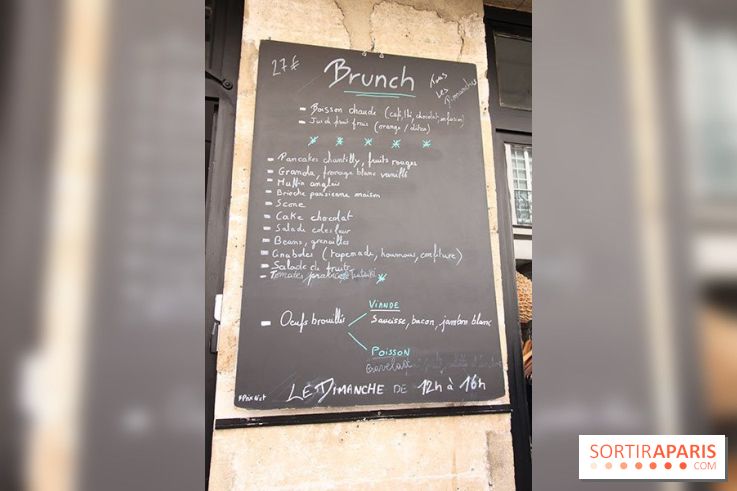 27€
Brunch
Tous
les
Dimanches
- Boisson chaude (café, thé, chocolat, infusion)
- Jus de fruit frais (orange / citron)
- Pancakes chantilly, fruits rouges
- Granola, fromage blanc vanillé
- Muffin anglais
- Brioche parisienne maison
- Scone
- Cake chocolat
- Salade coleslaw
- Beans, grenailles
- (tapenade, houmous, confiture)
- Salade de fruits
- Tomates
- Oeufs brouillés
VIANDE
Saucisse, bacon, jambon blanc
POISSON
LE DIMANCHE DE 12h à 16h
SORTIRAPARIS
.COM